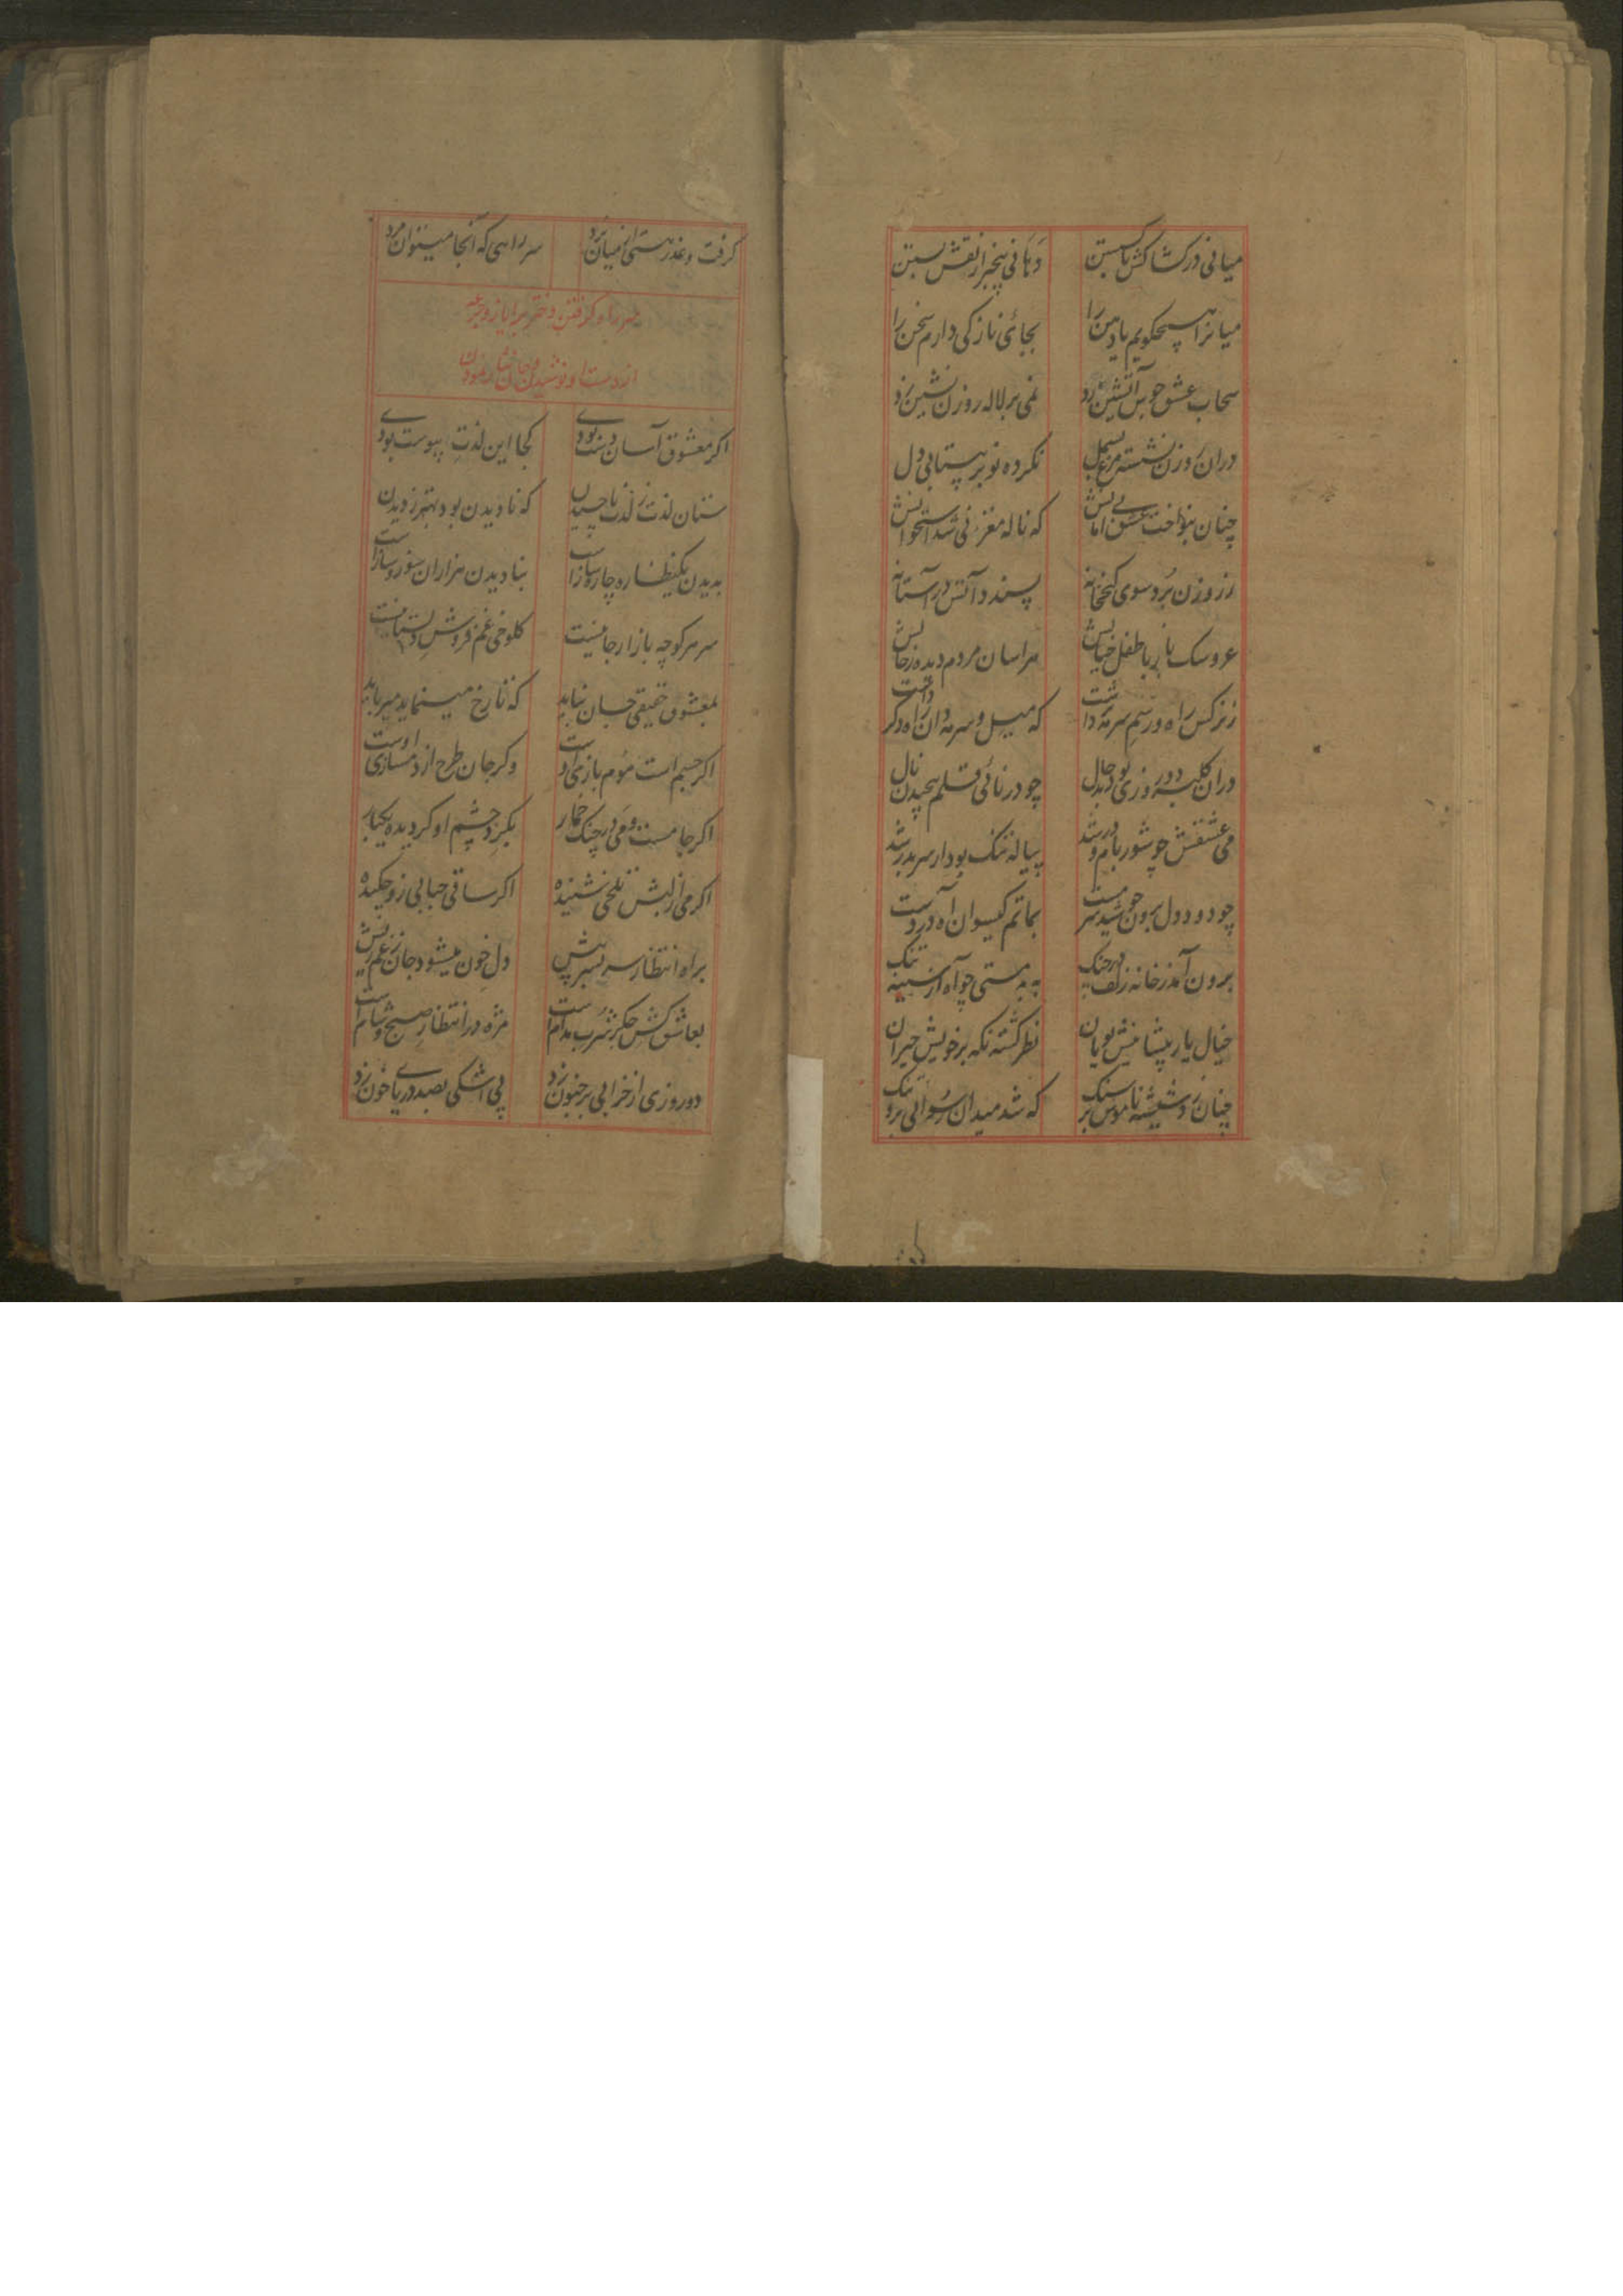 میانی در کشاکش تا کسستن دهانی بیخبر از نقش بستن
میانرا هیچ گویم یا دهن را بجائی نازکی دارم سخن را
سحاب عشق جوش آتشین زد نمی بر لاله روزن نشین زد
دران روزن نشسته مرغ بسمل نکرده نو پر بیتابی دل
چنان بنواخت عشق که ناله مغز نی شد استخوانش
ز روزن برد سوی کنج خانه سپند و آتش در آستانه
عروسک باز با طفل خیالش هراسان مردم دیده
ز نرکس راه و رسم سرمه داشت که میل و سرمه دان راه دکر داشت
دران کلبه دو روزی بود بدحال چو در نائی قلم پیچیدن نال
می عشقش چو شور بام و در شد پیاله تنک بود از سر بدر شد
چو دود دل برون جوشید سرمست بماتم کیسوان آه در دست
برون آمد ز خانه زلف در چنک به بدمستی چو آه از سینه تنک
خیال یار پیشاپیش پویان نظر کشته نکه بر خویش حیران
چنان زد شیشه ناموس بر سنک که شد میدان رسوائی برو تنک
کرفت و عذر هستی از میان برد سر راهی که آنجا میتوان مرد
سر راه کرفتن دختر بر ایاز و جرعه
از دست او نوشیدن و جان نثار نمودن
اکر معشوق آسان دست بودی کجا این لذت پیوست بودی
ستان لذت ز لذت ناچشیدن که نادیدن بود بهتر ز دیدن
بدیدن یکنظاره چاره سازاست بنادیدن هزاران سوز و سازاست
سر هر کوچه بازار جانیست کلوخی غم فروش دلستانیست
بمعشوق حقیقی جسان نباید که تا رخ مینماید میرباید
اکر جسم است موم بازی اوست وکر جان طرح از دمسازی اوست
اکر جامست و می در چنک خمار بکرد چشم او کردیده یکبار
اکر می از لبش تلخی شنیده اکر ساقی حبابی زو چکیده
براه انتظار سر بسر پیش دل خون میشود جان زغم ریش
بعاشق کش جکر شرب مدام است مژه در انتظار صبح و شام است
دو روزی از خرابی بر جنون زد پی اشکی بصد دریای خون زد